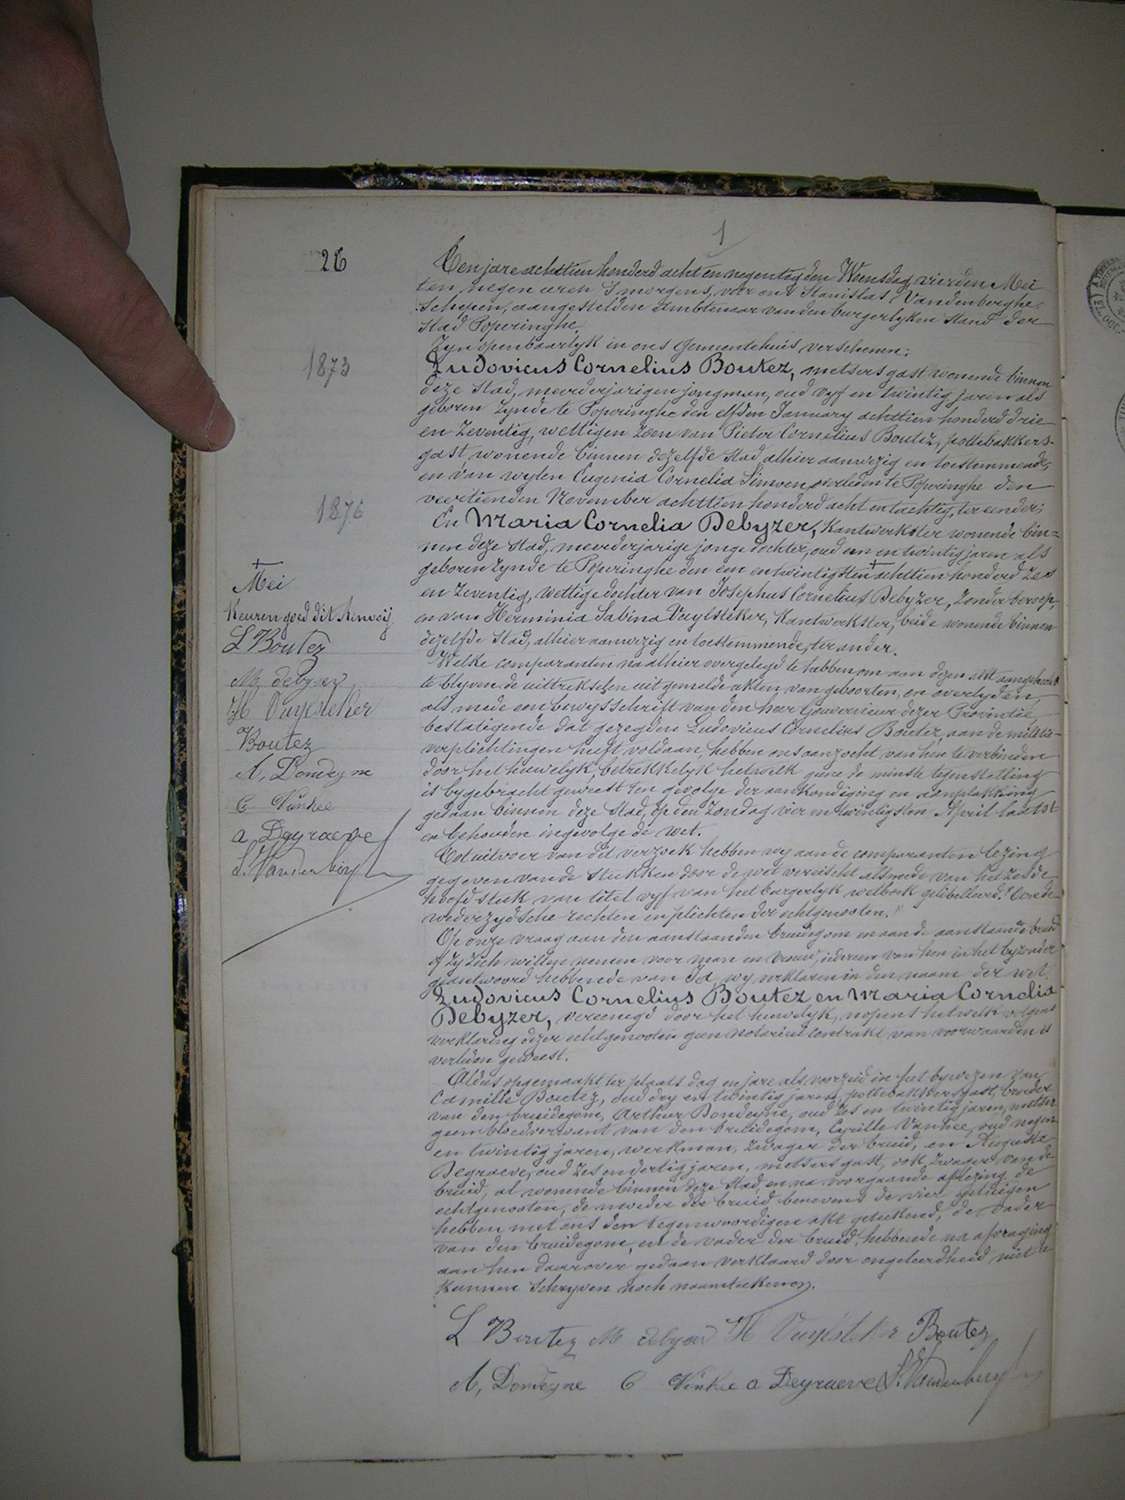 1
26
Ten jare achttien honderd acht en negentig den Weensdag vierden Mei
ten negen uren 's morgens, voor ons Stanislas Vandenberghe,
Schepen, aangestelden Ambtenaar van den burgerlyken stand der
Stad Poperinghe.
Zyn openbaarlyk in ons Gemeentehuis verschenen:
1873
Ludovicus Cornelius Boutez, metsersgast wonende binnen
deze stad, meerderjarigen jongman, oud vyf en twintig jaren als
geboren zynde te Poperinghe den elfden January achttien honderd drie
en zeventig, wettigen zoon van Pieter Cornelius Boutez, pottebakkers-
gast wonende binnen dezelfde stad alhier aanwezig en toestemmende,
en van wylen Eugenia Cornelia Simoen, overleden te Poperinghe den
veertienden November achttien honderd acht en tachtig, ter eender;
1876
En Maria Cornelia Debyzer, Kantwerkster wonende bin=
nen deze stad, meerderjarige jonge dochter, oud een en twintig jaren als
geboren zynde te Poperinghe den een en twintigsten + achttien honderd zes
en zeventig, wettige dochter van Josephus Cornelius Debyzer, zonder beroep,
en van Herminia Sabina Vuylsteker, Kantwerkster, beide wonende binnen
dezelfde stad, alhier aanwezig en toestemmende, ter ander.
+
Mei
Keuren goed dit Renvoij
L Boutez
M debyzer
H Vuylsteker
Boutez
A, Dondeyne
C Vankee
a Degraeve
S. Vandenberghe
Welke comparanten na alhier overgelegd te hebben, om aan dezen akt aangehecht
te blyven, de uittreksels uit gemelde akten van geboorten, en overlyden,
als mede een bewysschrift van den heer Gouverneur dezer Provincie
bestatigende dat gezegden Ludovicus Cornelius Boutez, aan de militie-
verplichtingen heeft voldaan hebben ons aanzocht, van hen te verbinden
door het huwelyk, betrekkelyk hetwelk geene de minste tegenstelling
is bygebracht geweest ten gevolge der aankondiging en aanplakking
gedaan binnen deze Stad, op den zondag vier en twintigsten April laatst
en behouden ingevolge de wet.
Tot uitvoer van dit verzoek hebben wy aan de comparanten lezing
gegeven van de stukken door de wet vereischt alsmede van het zesde
hoofdstuk van titel vyf van het burgerlyk wetboek getiteld "Over de
wederzydsche rechten en plichten der echtgenooten."
Op onze vraag aan den aanstaanden bruidegom en aan de aanstaande bruid
of zy zich willen nemen voor man en vrouw, iedereen van hen in het byzonder
geantwoord hebbende van Ja, wy verklaren in den naam der wet,
Ludovicus Cornelius Boutez en Maria Cornelia
Debyzer, vereenigd door het huwelyk, nopens hetwelk volgens
verklaring dezer echtgenooten geen notarieel contrakt van voorwaarden is
verleden geweest.
Aldus opgemaakt ter plaats dag en jare als voorzeid in het bywezen van
Camille Boutez, oud dry en twintig jaren, pottebakkersgast, broeder
van den bruidegom, Arthur Dondeyne, oud zes en twintig jaren, metser
geen bloedverwant van den bruidegom, Cyrille Vankee, oud negen
en twintig jaren, werkman, zwager der bruid, en Auguste
Degraeve, oud zes en dertig jaren, metsersgast, ook zwager van de
bruid, al wonende binnen deze stad, en na voorgaande aflezing de
echtgenooten, de moeder der bruid benevens de vier getuigen
hebben met ons den tegenwoordigen akt geteekend, de vader
van den bruidegom, en de vader der bruid, hebbende na afvraging
aan hen daarover gedaan verklaard door ongeleerdheid niet te
kunnen schryven noch naamteekenen.
L Boutez M debyzer H Vuylsteker Boutez
A, Dondeyne C Vankee a Degraeve S. Vandenberghe